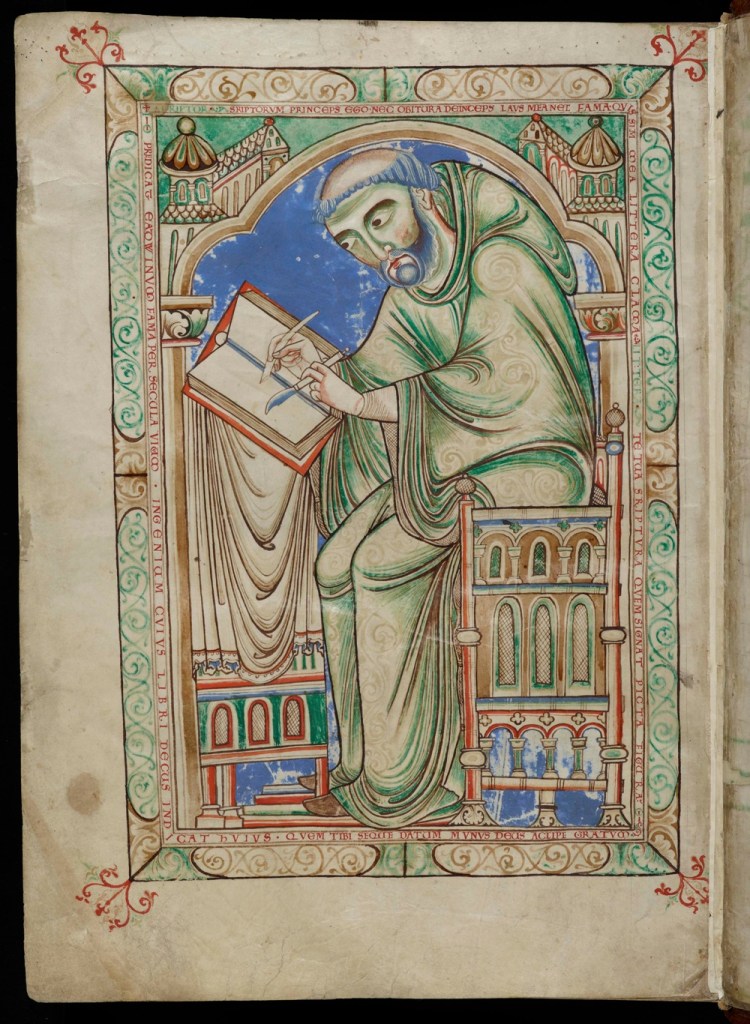 SCRIPTOR SRIPTORVM PRINCEPS EGO · NEC OBITURA DEINCEPS LAVS MEA NEC FAMA · QVI
S SIM MEA LITTERA CLAMA · LITTERA · TE TVA SCRIPTVRA QVEM SIGNAT PICTA FIGURA ·
PREDICAT EADWINVM FAMA PER SECULA VIVVM · INGENIUM CVIVS LIBRI DECUS INDI
CAT HVIVS · QVEM TIBI SEQUE DATUM MVNVS DEUS ACCIPE GRATVM